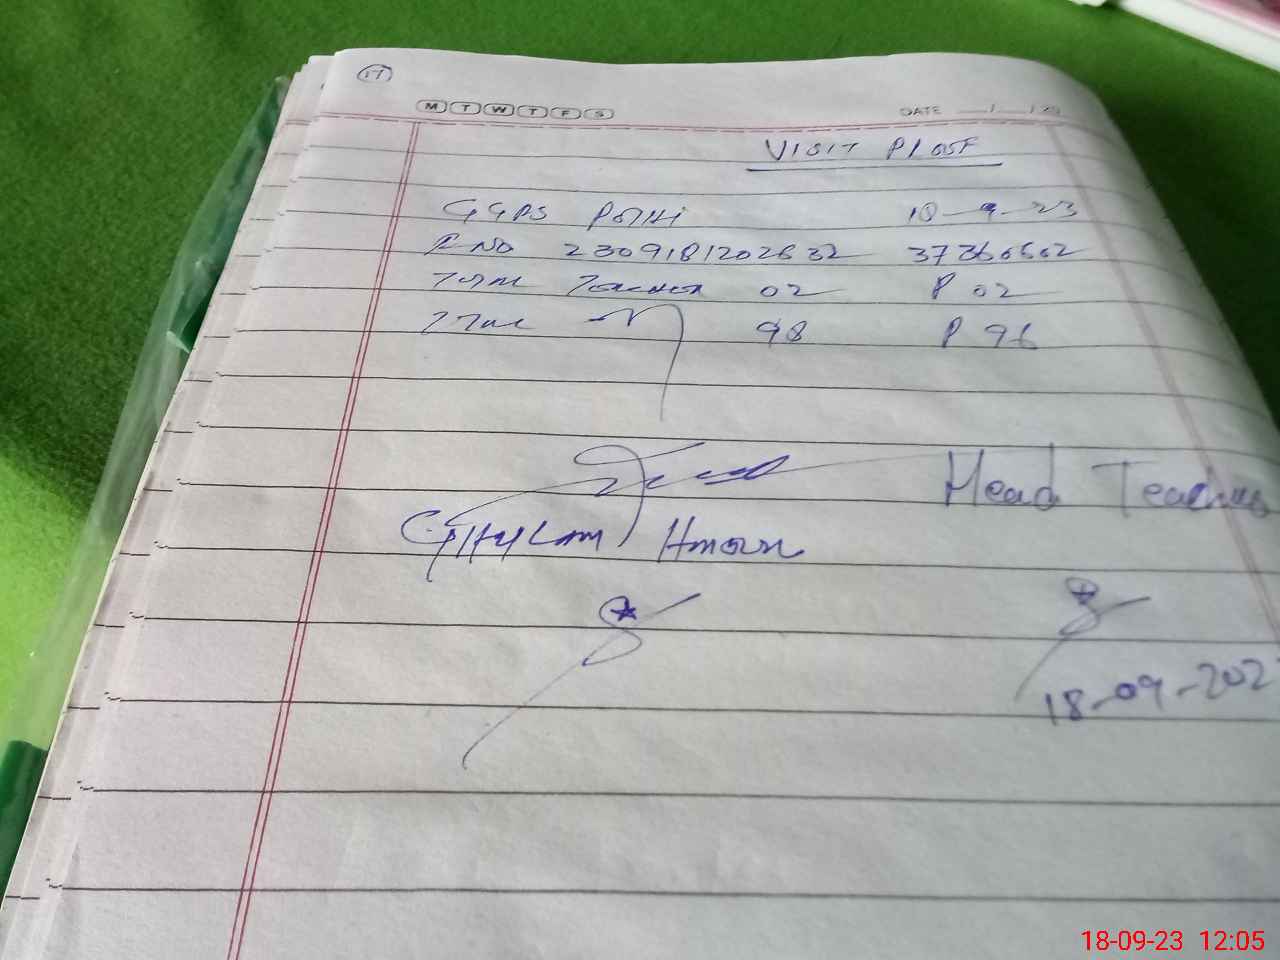 17
M T W T F S
DATE / / 20
VISIT PROOF
GGPS 18-9-23
NO 2309181202632 37360602
Total Teacher 02 P 02
98 P 96
Head Teacher
Ghulam
18-09-202
18-09-23 12:05